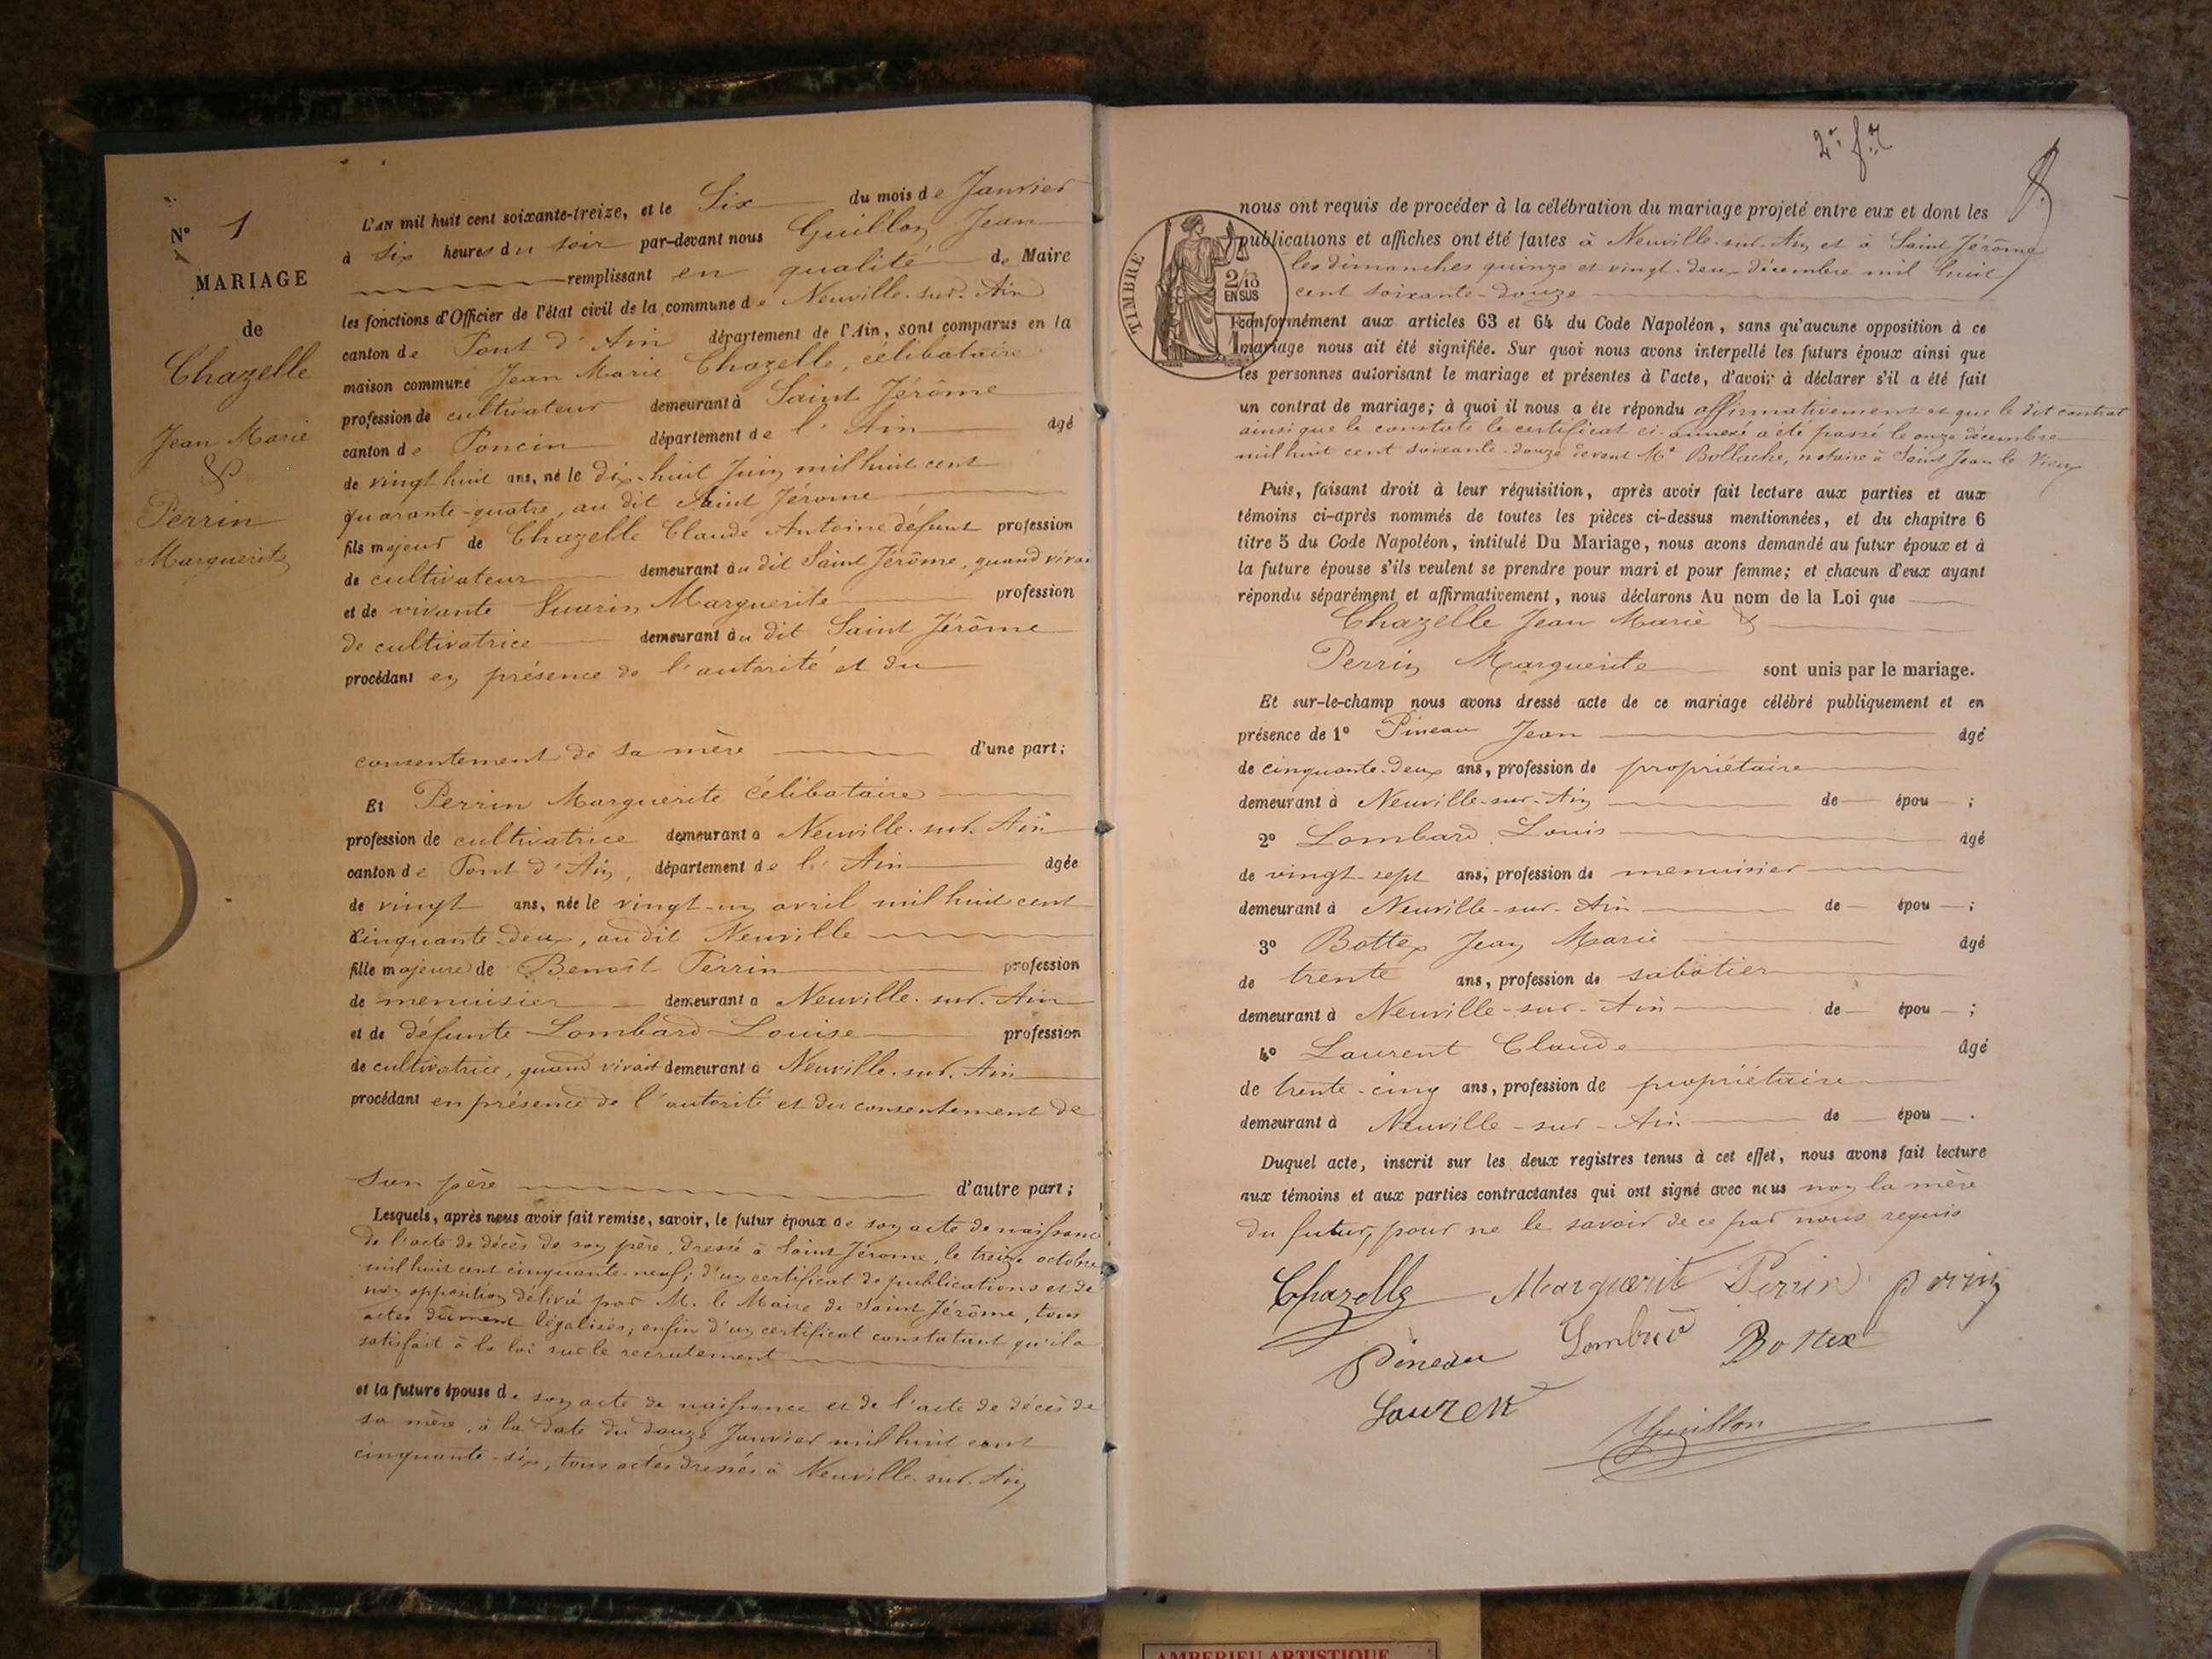 N° 1
MARIAGE
de
Chazelle
Jean Marie
&
Perrin
Marguerite
L'AN mil huit cent soixante-treize, et le Six du mois de Janvier
à six heures du soir par-devant nous Guillon Jean
remplissant en qualité de Maire
les fonctions d'Officier de l'état civil de la commune de Neuville-sur-Ain
canton de Pont d'Ain département de l'Ain, sont comparus en la
maison commune Jean Marie Chazelle, célibataire
profession de cultivateur demeurant à Saint Jérôme
canton de Poncin département de l'Ain âgé
de vingt huit ans, né le dix-huit Juin mil huit cent
quarante-quatre, au dit Saint Jérome
fils majeur de Chazelle Claude Antoine défunt profession
de cultivateur demeurant au dit Saint Jérôme, quand vivai
et de vivante Vuarin Marguerite profession
de cultivatrice demeurant au dit Saint Jérôme
procédant en présence de l'autorité et du
consentement de sa mère d'une part;
Et Perrin Marguerite célibataire
profession de cultivatrice demeurant a Neuville-sur-Ain
canton de Pont d'Ain, département de l'Ain âgée
de vingt ans, née le vingt-un avril mil huit cent
cinquante-deux, au dit Neuville
fille majeure de Benoît Perrin profession
de menuisier demeurant a Neuville-sur-Ain
et de défunte Lombard Louise profession
de cultivatrice, quand vivait demeurant à Neuville-sur-Ain
procédant en présence de l'autorité et du consentement de
son père d'autre part;
Lesquels, après nous avoir fait remise, savoir, le futur époux de son acte de naissance
de l'acte de décès de son père, dressé à Saint Jérome, le treize octobre
mil huit cent cinquante-neuf; d'un certificat de publications et de
non opposition délivré par M. le Maire de Saint Jérôme, tous
actes dûment légalisés, enfin d'un certificat constatant qu'il a
satisfait à la loi sur le recrutement
et la future épouse de son acte de naissance et de l'acte de décès de
sa mère, à la date du douze Janvier mil huit cent
cinquante-six, tous actes dressés à Neuville-sur-Ain
TIMBRE
2/10
EN SUS
nous ont requis de procéder à la célébration du mariage projeté entre eux et dont les
publications et affiches ont été faites à Neuville-sur-Ain et à Saint Jérôme
les dimanches quinze et vingt-deux décembre mil huit
cent soixante-douze
conformément aux articles 63 et 64 du Code Napoléon, sans qu'aucune opposition à ce
mariage nous ait été signifiée. Sur quoi nous avons interpellé les futurs époux ainsi que
les personnes autorisant le mariage et présentes à l'acte, d'avoir à déclarer s'il a été fait
un contrat de mariage; à quoi il nous a été répondu affirmativement et que le dit contrat
ainsi que le constate le certificat ci-annexé a été passé le onze décembre
mil huit cent soixante-douze devant Me Bollache, notaire à Saint Jean le Vieux
Puis, faisant droit à leur réquisition, après avoir fait lecture aux parties et aux
témoins ci-après nommés de toutes les pièces ci-dessus mentionnées, et du chapitre 6
titre 5 du Code Napoléon, intitulé Du Mariage, nous avons demandé au futur époux et à
la future épouse s'ils veulent se prendre pour mari et pour femme; et chacun d'eux ayant
répondu séparément et affirmativement, nous déclarons Au nom de la Loi que
Chazelle Jean Marie &
Perrin Marguerite sont unis par le mariage.
Et sur-le-champ nous avons dressé acte de ce mariage célébré publiquement et en
présence de 1° Pineau Jean âgé
de cinquante-deux ans, profession de propriétaire
demeurant à Neuville-sur-Ain de épou ;
2° Lombard Louis âgé
de vingt-sept ans, profession de menuisier
demeurant à Neuville-sur-Ain de épou ;
3° Bottex Jean Marie âgé
de trente ans, profession de sabotier
demeurant à Neuville-sur-Ain de épou ;
4° Laurent Claude âgé
de trente-cinq ans, profession de propriétaire
demeurant à Neuville-sur-Ain de épou .
Duquel acte, inscrit sur les deux registres tenus à cet effet, nous avons fait lecture
aux témoins et aux parties contractantes qui ont signé avec nous non la mère
du futur, pour ne le savoir de ce par nous requis
Chazelle Marguerit Perrin perrin
Pineau Lombard Bottex
Laurent
Guillon
AMBERIEU ARTISTIQUE